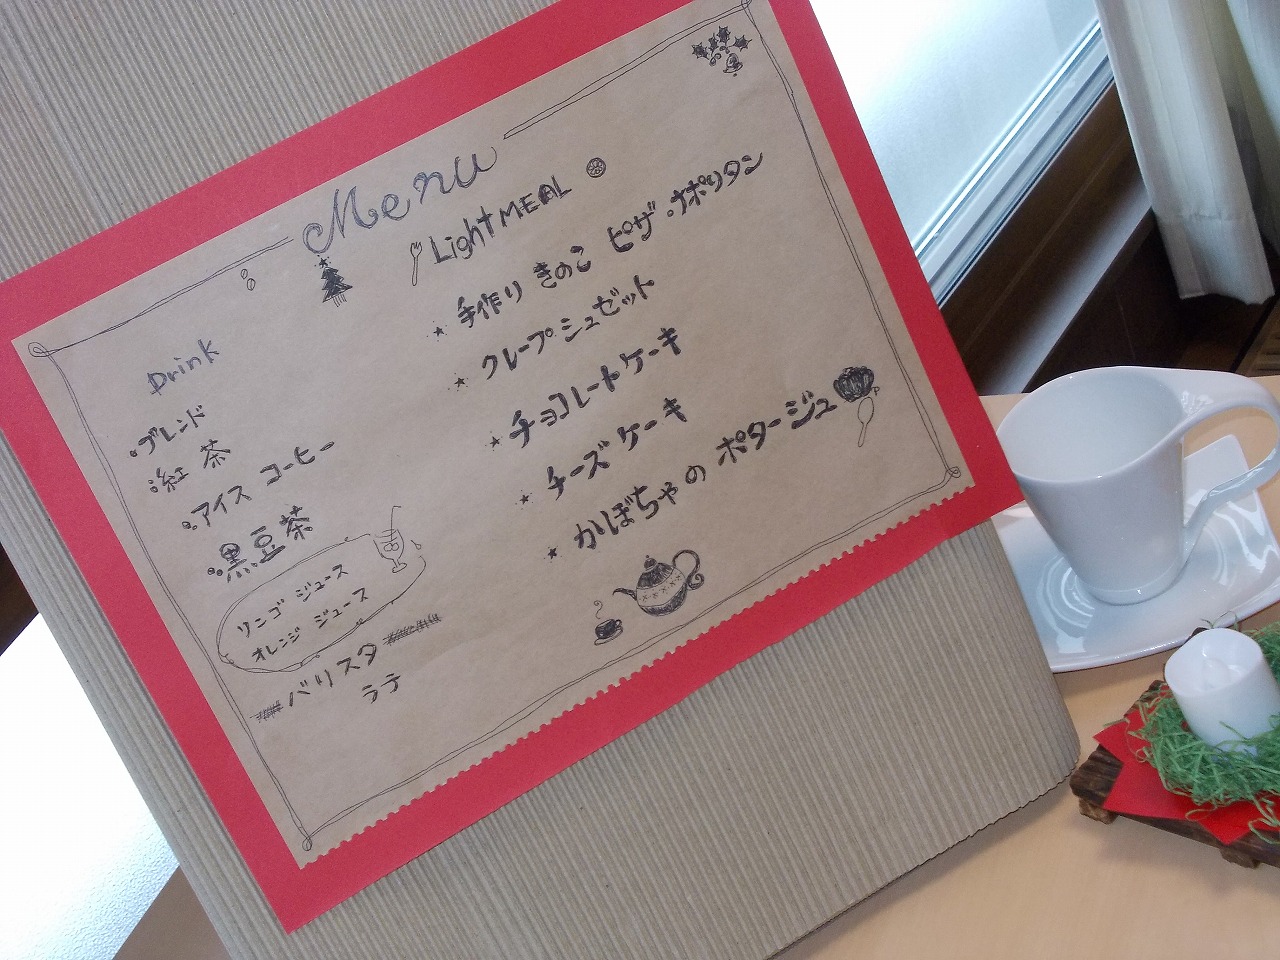 Menu
Drink
・ブレンド
・紅茶
・アイス コーヒー
・黒豆茶
リンゴ ジュース
オレンジ ジュース
バリスタ
ラテ
Light MEAL
手作り きのこ ピザ・ナポリタン
クレープシュゼット
チョコレートケーキ
チーズ ケーキ
かぼちゃの ポタージュ